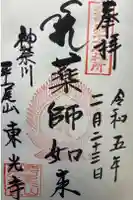 奉拝
令和五年
二月二十三日
薬師如来
神奈川
東光寺